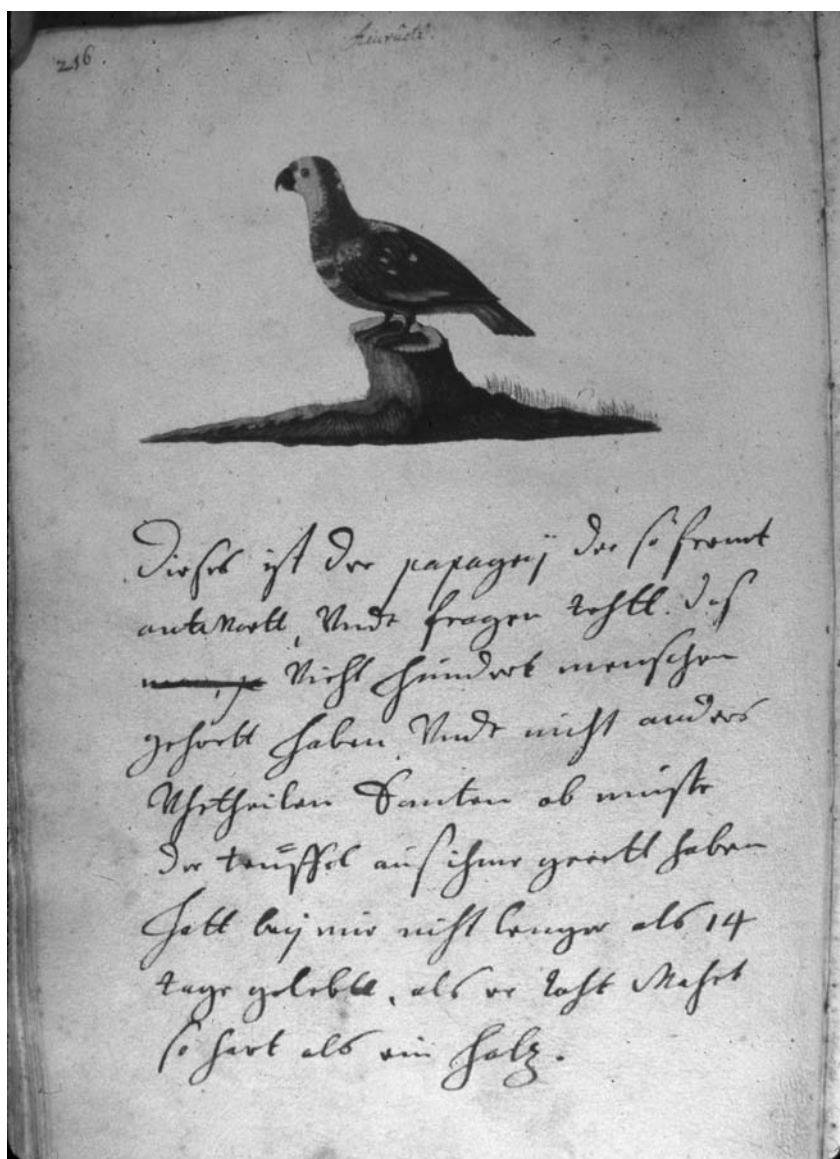 216.
Aeiurucú.
Dieses ist der papageij der so fremt
antwortt, Unde fragen
Vicht hundert menschen
gehortt haben, Unde nicht anders
Uhrtheilen Canten ob muste
der teuffel aus ihme gerett haben
hatt beij mir nicht lenger als 14
tage gelebtt, als er toht Wahrt
so hart als ein holtz.